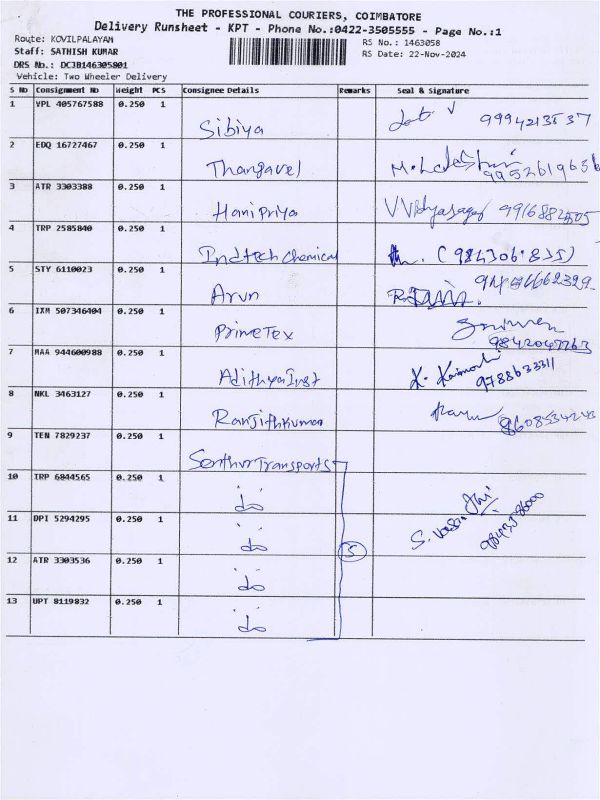 THE PROFESSIONAL COURIERS, COIMBATORE
Delivery Runsheet - KPT - Phone No.:0422-3505555 - Page No.:1
Route: KOVILPALAYAM
Staff: SATHISH KUMAR
DRS No.: DCJB146305801
Vehicle: Two Wheeler Delivery
RS No.: 1463058
RS Date: 22-Nov-2024
S No Consignment No Weight PCS Consignee Details Remarks Seal & Signature
1 VPL 405767588 0.250 1 Sibiya
2 EDQ 16727467 0.250 1 Thangavel
3 ATR 3303388 0.250 1 Hanipriya
4 TRP 2585840 0.250 1 Indtech chemical
5 STY 6110023 0.250 1 Arun
6 IXM 507346404 0.250 1 PrimeTex 9842047263
7 MAA 944600988 0.250 1 Adithya Inst
8 NKL 3463127 0.250 1 Ranjithkumar
9 TEN 7829237 0.250 1 Senthur Transports
10 TRP 6844565 0.250 1 do
11 DPI 5294295 0.250 1 do 5
12 ATR 3303536 0.250 1 do
13 UPT 8119832 0.250 1 do